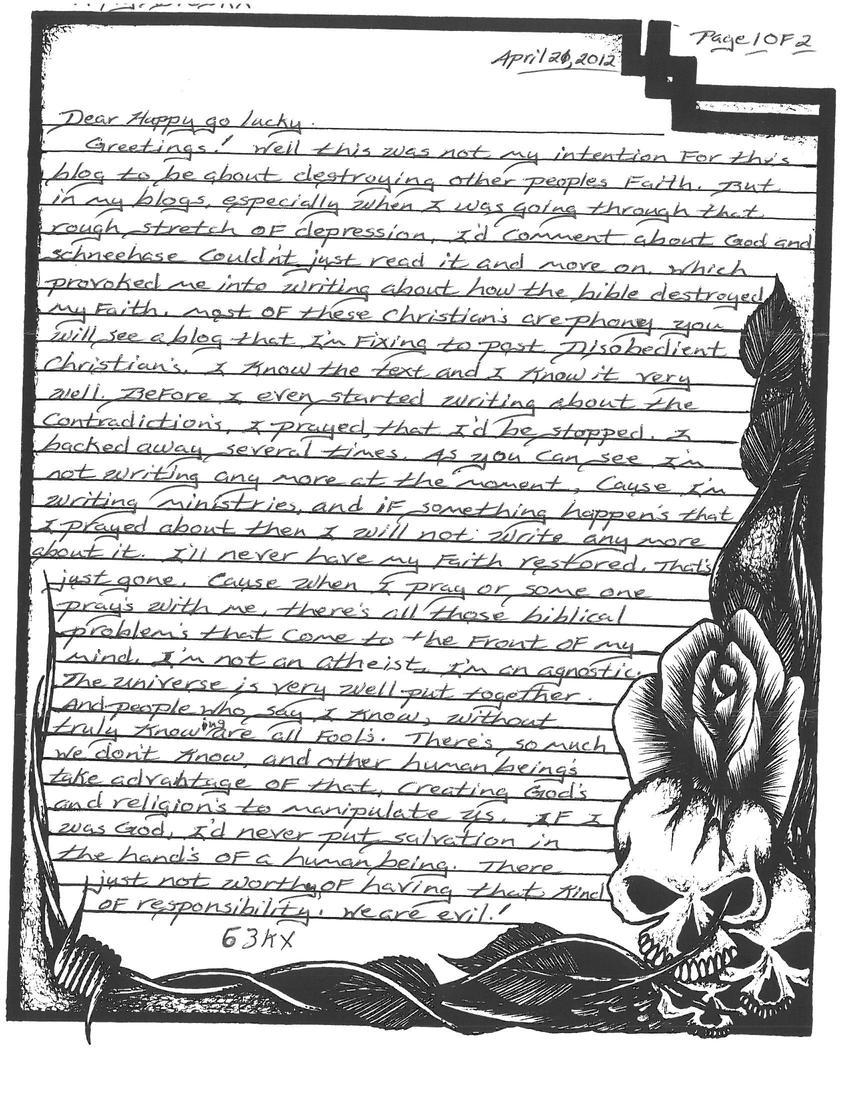 Page 1 OF 2
April 20, 2012
Dear Happy go lucky.
Greetings! Well this was not my intention For this
blog to be about destroying other peoples Faith. But
in my blogs, especially when I was going through that
rough stretch OF depression, I'd comment about God and
schneehase Couldn't just read it and move on. which
provoked me into writing about how the bible destroyed
my Faith. most OF these Christian's are phoney you
will see a blog that I'm Fixing to post Disobedient
Christian's. I Know the text and I Know it very
well. BeFore I even started writing about the
Contradiction's, I prayed, that I'd be stopped. I
backed away several times. As you Can see I'm
not writing any more at the moment, Cause I'm
writing ministries, and iF something happen's that
I prayed about then I will not write any more
about it. I'll never have my Faith restored. That's
just gone. Cause when I pray or some one
pray's with me, there's all those biblical
problem's that Come to the Front OF my
mind. I'm not an atheist, I'm an agnostic.
The universe is very well put together.
And people who say I Know, without
truly Knowing are all Fool's. There's so much
we don't Know, and other human being's
take advantage OF that, Creating God's
and religion's to manipulate us. IF I
was God, I'd never put salvation in
the hand's OF a human being. There
just not worthy OF having that Kind
OF responsibility. We are evil!
63KX